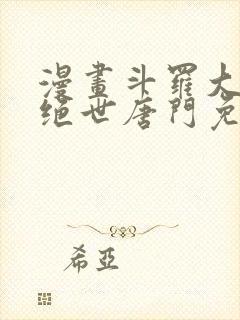 漫畫斗羅大
絕世唐門免
希亞